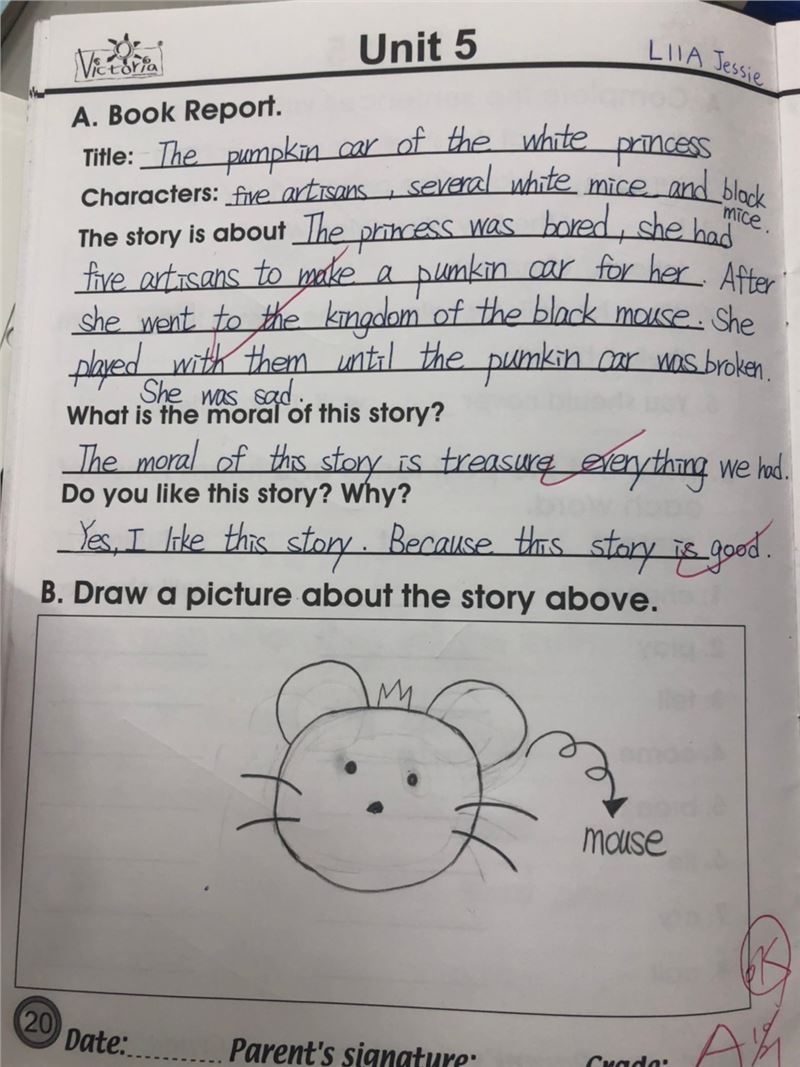 Victoria
Unit 5
L11A Jessie
A. Book Report.
Title: The pumpkin car of the white princess
Characters: five artisans, several white mice and black mice.
The story is about The princess was bored, she had
five artisans to make a pumkin car for her. After
she went to the kingdom of the black mouse. She
played with them until the pumkin car was broken.
She was sad.
What is the moral of this story?
The moral of this story is treasure everything we had.
Do you like this story? Why?
Yes, I like this story. Because this story is good.
B. Draw a picture about the story above.
mouse
OK
20
Date: Parent's signature: Grade: A